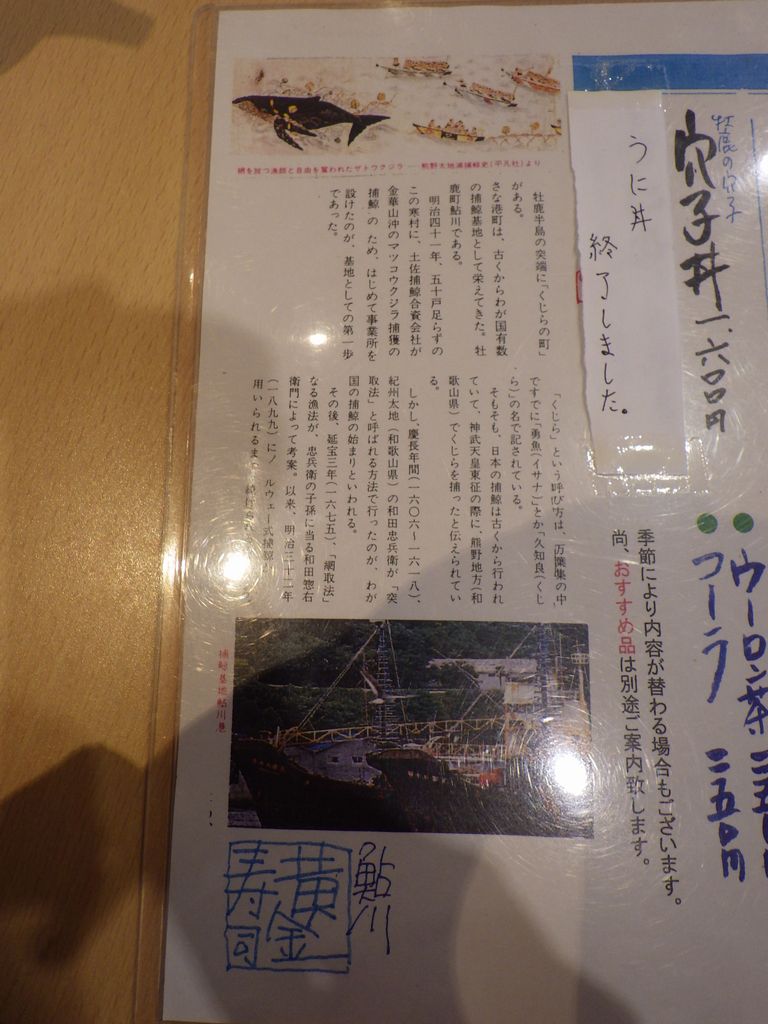 牡鹿の穴子
穴子丼 一、六〇〇円
うに丼
終了しました。
ウーロン茶
コーラ 二五〇円
季節により内容が替わる場合もございます。
尚、おすすめ品は別途ご案内致します。
網を放つ漁師と自由を奪われたザトウクジラ──熊野太地浦捕鯨史(平凡社)より
牡鹿半島の突端に「くじらの町」
がある。
さな港町は、古くからわが国有数
の捕鯨基地として栄えてきた。牡
鹿町鮎川である。
明治四十一年、五十戸足らずの
この寒村に、土佐捕鯨合資会社が
金華山沖のマッコウクジラ捕獲の
捕鯨のため、はじめて事業所を
設けたのが、基地としての第一歩
であった。
「くじら」という呼び方は、万葉集の中
ですでに「勇魚(イサナ)」とか「久知良(くじ
ら)」の名で記されている。
そもそも、日本の捕鯨は古くから行われ
ていて、神武天皇東征の際に、熊野地方(和
歌山県)でくじらを捕ったと伝えられてい
る。
しかし、慶長年間(一六〇六〜一六一八)、
紀州太地(和歌山県)の和田忠兵衛が「突
取法」と呼ばれる方法で行ったのが、わが
国の捕鯨の始まりといわれる。
その後、延宝三年(一六七五)、「網取法」
なる漁法が、忠兵衛の子孫に当る和田惣右
衛門によって考案。以来、明治三十二年
(一八九九)にノルウェー式捕鯨
用いられるま
捕鯨基地鮎川港
鮎川
黄金
寿司